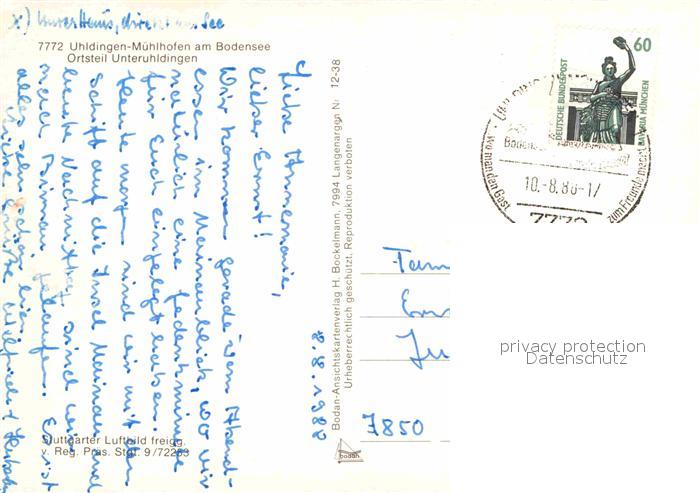 x) Unser Haus, direkt am See
7772 Uhldingen-Mühlhofen am Bodensee
Ortsteil Unteruhldingen
8.8.1988
Liebe Annemarie,
lieber Ernst!
Wir kommen gerade vom Abend-
essen im Mainaublick, wo wir
natürlich eine Gedenkminute
für Euch eingelegt haben.
Heute morgen sind wir mit dem
Schiff auf die Insel Mainau und
heute Nachmittag sind wir
nach Birnau gelaufen. Es ist
alles sehr schön hier.
Liebe Grüße Wilfried +
Stuttgarter Luftbild freigg.
v. Reg. Präs. Stgt. 9/72263
Bodan-Ansichtskartenverlag H. Bockelmann, 7994 Langenargen Nr. 12-38
Urheberrechtlich geschützt, Reproduktion verboten
bodan
60
DEUTSCHE BUNDESPOST
BAVARIA MÜNCHEN
wo man den Gast zum Freunde macht
10.-8.88-17
7772
Fam
Jun
7850
privacy protection
Datenschutz